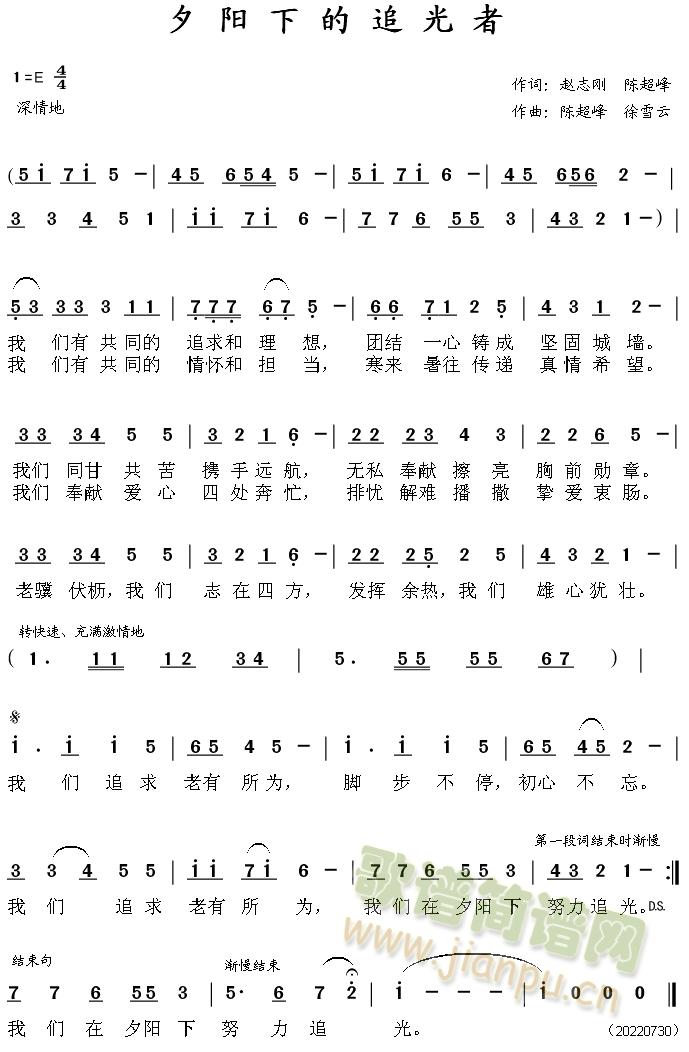 夕阳下的追光者
1=E 4/4
作词：赵志刚 陈超峰
深情地
作曲：陈超峰 徐雪云
(5i 7i 5 -| 45 654 5 -| 5i 7i 6 -| 45 656 2 -|
3 3 4 5 1 | ii 7i 6 -| 7 7 6 55 3 | 43 2 1 -)|
53 33 3 11 | 777 67 5 -| 66 71 2 5 | 4 3 1 2 -|
我 们有 共 同的 追求和 理 想， 团结 一心 铸 成 坚 固 城 墙。
我 们有 共 同的 情怀和 担 当， 寒来 暑往 传 递 真 情 希 望。
33 34 5 5 | 3 2 1 6 -| 22 23 4 3 | 2 2 6 5 -|
我们 同甘 共 苦 携 手 远 航， 无私 奉献 擦 亮 胸 前 勋 章。
我们 奉献 爱 心 四 处 奔 忙， 排忧 解难 播 撒 挚 爱 衷 肠。
33 34 5 5 | 3 2 1 6 -| 22 25 2 5 | 4 3 2 1 -|
老骥 伏枥，我 们 志 在 四 方， 发挥 余热，我 们 雄 心 犹 壮。
转快速、充满激情地
( 1. 11 12 34 | 5. 55 55 67 )|
i . i i 5 | 65 4 5 -| i . i i 5 | 65 45 2 -|
我 们 追 求 老有 所 为， 脚 步 不 停，初心 不 忘。
第一段词结束时渐慢
3 3 4 5 5 | ii 7i 6 -| 7 7 6 55 3 | 43 2 1 - :||
我 们 追 求 老有 所 为， 我 们 在 夕阳 下 努力 追 光。D.S.
结束句 渐慢结束
7 7 6 55 3 | 5· 6 7 2 | i - - - | i 0 0 0 ||
我 们 在 夕阳 下 努 力 追 光。
（20220730）
歌谱简谱网
www.jianpu.cn